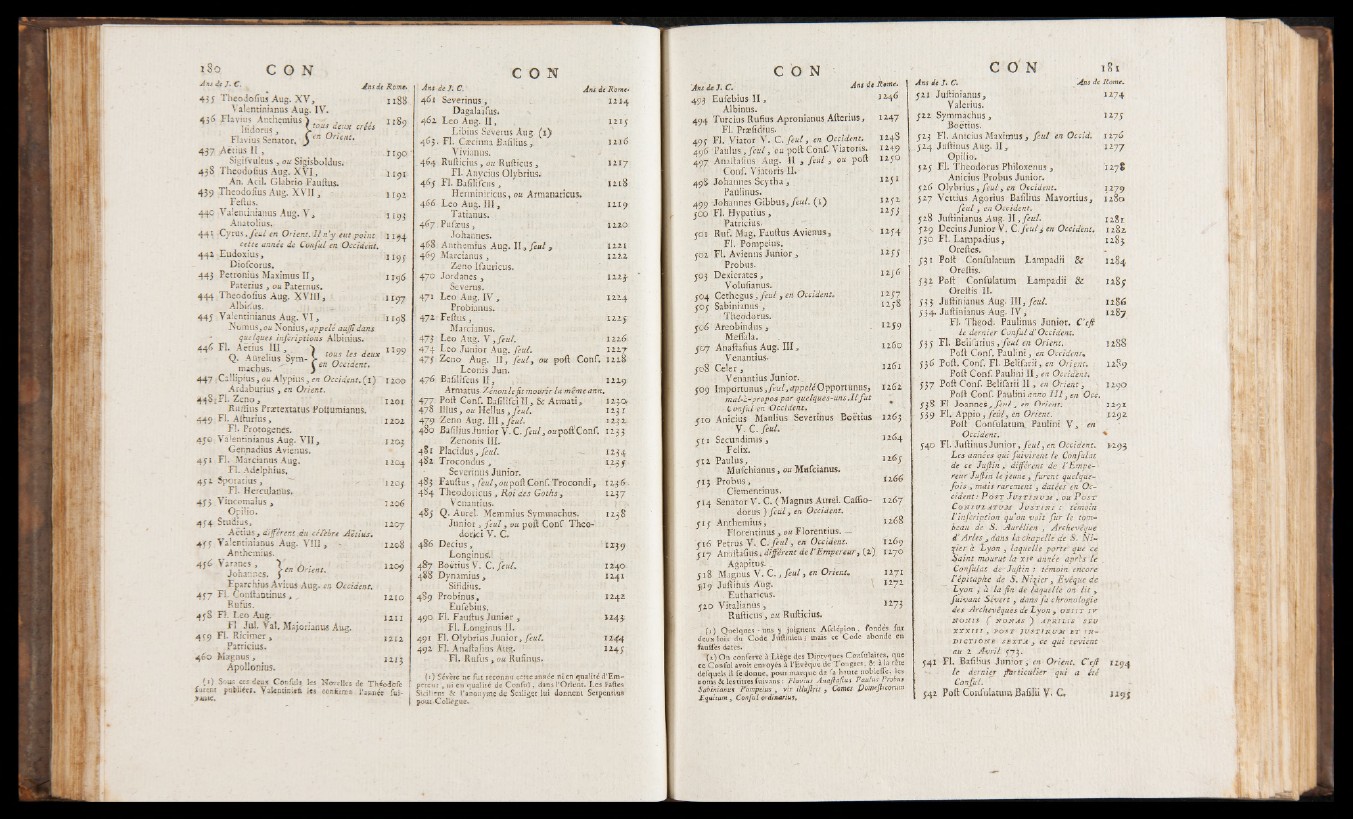 180 CON
Ans de J. C. Ans de Rome.
435 Theodosius Aug. XV, 1188
Valentinianus Aug. IV.
436 Flavius Anthemius } tous deux créés 1189
Isidorus, } en Orient.
Flavius Senator. }
437 Aetius II, 1190
Sigisvultus, ou Sigisboldus.
438 Theodosius Aug. XVI, 1191
An. Acil. Glabrio Faustus.
439 Theodosius Aug. XVII, 1192
Festus.
440 Valentinianus Aug. V, 1193
Anatolius.
441 Cyrus, seul en Orient. Il n'y eut point 1194
cette année de Consul en Occident.
442 Eudoxius, 1195
Dioscorus.
443 Petronius Maximus II, 1196
Paterius, ou Paternus.
444 Theodosius Aug. XVIII, 1197
Albinus.
445 Valentinianus Aug. VI, 1198
Nomus, ou Nonius, appelé aussi dans
quelques inscriptions Albinus.
446 Fl. Aetius III, } tous les deux 1199
Q. Aurelius Sym- } en Occident.
machus. }
447 Callipius, ou Alypius, en Occident. (1) 1200
Ardaburius, en Orient.
448 Fl. Zeno, 1201
Ruffius Prætextatus Postumianus.
449 Fl. Asturius, 1202
Fl. Protogenes.
450 Valentinianus Aug. VII, 1203
Gennadius Avienus.
451 Fl. Marcianus Aug. 1204
Fl. Adelphius.
452 Sporatius, 1205
Fl. Herculanus.
453 Vincomalus, 1206
Opilio.
454 Studius, 1207
Aëtius, différent du célèbre Aëtius.
455 Valentinianus Aug. VIII, 1208
Anthemius.
456 Varanes, } en Orient. 1209
Johannes. }
Eparchius Avitus Aug. en Occident.
457 Fl. Constantinus, 1210
Rufus.
458 Fl. Leo Aug. 1211
Fl Jul. Val. Majorianus Aug.
459 Fl. Ricimer, 1212
Patricius.
460 Magnus, 1213
Apollonius.
(1) Sous ces deux Consuls les Novelles de Théodose
furent publiées. Valentinien les confirma l'année sui-
vante.
CON
Ans de J. C. Ans de Rome.
461 Severinus, 1214
Dagalaifus.
462 Leo Aug. II, 1215
Libius Severus Aug. (1)
463 Fl. Cæcinna Basilius, 1216
Vivianus.
464 Rusticius, ou Rusticus, 1217
Fl. Anycius Olybrius.
465 Fl. Basiliscus, 1218
Herminiricus, ou Armanaricus.
466 Leo Aug. III, 1219
Tatianus.
467 Pusæus, 1220
Johannes.
468 Anthemius Aug. II, seul, 1221
469 Marcianus, 1222
Zeno Isauricus.
470 Jordanes, 1223
Severus.
471 Leo Aug. IV, 1224
Probianus.
472 Festus, 1225
Marcianus.
473 Leo Aug. V, seul. 1226
474 Leo Junior Aug. seul. 1227
475 Zeno Aug. II, seul, ou post Conf. 1228
Leonis Jun.
476 Basiliscus II, 1229
Armatus. Zénon le fit mourir la même ann.
477 Post Conf. Basilisci II, & Armati, 1230
478 Illus, ou Hellus, seul. 1231
479 Zeno Aug. III, seul. 1232
480 Basilius Junior V. C. seul, ou post Conf. 1233
Zenonis III.
481 Placidus, seul. 1234
482 Trocondus, 1235
Severinus Junior.
483 Faustus, seul, ou post Conf. Trocondi, 1236
484 Theodoricus, Roi des Goths, 1237
Venantius.
485 Q. Aurel. Memmius Symmachus. 1238
Junior, seul, ou post Conf Theo-
dorici V. C.
486 Decius, 1239
Longinus.
487 Boetius V. C. seul. 1240
488 Dynamius, 1241
Sifidius.
489 Probinus, 1242
Eusebius.
490 Fl. Faustus Junior, 1243
Fl. Longinus II.
491 Fl. Olybrius Junior, seul. 1244
492 Fl. Anastasius Aug. 1245
Fl. Rufus, ou Rufinus.
(1) Sévère ne fut reconnu cette année ni en qualité d'Em-
pereur, ni en qualité de Consul, dans l'Orient. Les Fastes
Siciliens & l'anonyme de Scaliger lui donnent Serpensius
pour Collègue.
CON
Ans de J. C. Ans de Rome.
493 Eusebius II, 1246
Albinus.
494 Turcius Rufius Apronianus Asterius, 1247
Fl. Præsidius.
495 Fl. Viator V. C. seul, en Occident. 1248
496 Paulus, seul, ou post Conf. Viatoris. 1249
497 Anastasius Aug. II, seul, ou post 1250
Conf. Viatoris II.
498 Johannes Scytha, 1251
Paulinus.
499 Johannes Gibbus, seul. (1) 1252
500 Fl. Hypatius, 1253
Patricius.
501 Ruf. Mag. Faustus Avienus, 1254
Fl. Pompeius.
502 Fl. Avienus Junior, 1255
Probus.
503 Dexicrates, 1256
Volusianus.
504 Cethegus, seul, en Occident. 1257
505 Sabinianus, 1258
Theodorus.
506 Areobindus, 1259
Messala.
507 Anastasius Aug. III, 1260
Venantius.
508 Celer, 1261
Venantius Junior.
509 Importunus, seul, appelé Opportunus, 1262
mal-à-propos par quelques-uns. Il fut
Consul en Occident.
510 Anicius Manlius Severinus Boëtius 1263
V. C. seul.
511 Secundinus, 1264
Felix.
512 Paulus, 1265
Muschianus, ou Muscianus.
513 Probus, 1266
Clementinus.
514 Senator V. C. (Magnus Aurel. Cassio- 1267
dorus) seul, en Occident.
515 Anthemius, 1268
Florentinus, ou Florentius.
516 Petrus V. C. seul, en Occident. 1269
517 Anastasius, différent de l'Empereur, (2) 1270
Agapitus.
518 Magnus V. C., seul, en Orient. 1271
519 Justinus Aug. 1272
Eutharicus.
520 Vitalianus, 1273
Rusticus, ou Rusticius.
(1) Quelques-uns y joignent Asclépion, fondés sur
deux loix du Code Justinien; mais ce Code abonde en
fausses dates.
(2) On conserve à Liège des Diptyques Consulaires, que
ce Consul avoit envoyés à l'Evêque de Tongres, & à la tête
desquels il se donne, pour marque de sa haute noblesse, les
noms & les titres suivans: Flavius Anastasius Paulus Probus
Sabinianus Pompeius, vir illustris, Comes Domesticorum
Equitum, Consul ordinarius.
CON 181
Ans de J. C. Ans de Rome.
521 Justinianus, 1274
Valerius.
522 Symmachus, 1275
Boëtius.
523 Fl. Anicius Maximus, seul en Occid. 1276
524 Justinus Aug. II, 1277
Opilio.
525 Fl. Theodorus Philoxenus, 1278
Anicius Probus Junior.
526 Olybrius, seul, en Occident. 1279
527 Vettius Agorius Basilius Mavortius, 1280
seul, en Occident.
528 Justinianus Aug. II, seul. 1281
529 Decius Junior V. C. seul, en Occident. 1282
530 Fl. Lampadius, 1283
Orestes.
531 Post Consulatum Lampadii & 1284
Orestis.
532 Post Consulatum Lampadii & 1285
Orestis II.
533 Justinianus Aug. III, seul. 1286
534 Justinianus Aug. IV, 1287
Fl. Theod. Paulinus Junior. C'est
le dernier Consul d'Occident.
535 Fl. Belisarius, seul en Orient. 1288
Post Conf. Paulini, en Occident.
536 Post. Conf. Fl. Belisarii, en Orient. 1289
Post Conf. Paulini II, en Occident.
537 Post Conf. Belisarii II, en Orient, 1290
Post Conf. Paulini anno III, en Occ.
538 Fl Joannes, seul, en Orient. 1291
539 Fl. Appio, seul, en Orient. 1292
Post Consulatum Paulini V, en
Occident.
540 Fl. Justinus Junior, seul, en Occident. 1293
Les années qui suivirent le Consulat
de ce Justin, différent de l'Empe-
reur Justin le jeune, furent quelque-
fois, mais rarement, datées en Oc-
cident: POST JUSTINUM, ou POST
CONSULATUM JUSTINI: témoin
l'inscription qu'on voit sur le tom-
beau de S. Aurélien, Archevêque
d'Arles, dans la chapelle de S. Ni-
zier à Lyon, laquelle porte que ce
Saint mourut la XIe année après le
Consulat de Justin: témoin encore
l'épitaphe de S. Nizier, Evêque de
Lyon, à la fin de laquelle on lit,
suivant Sévert, dans sa chronologie
des Archevêques de Lyon, OBIIT IV
NONIS ( NONAS ) APRILIS SUB
XXXIII, POST JUSTINUM ET IN-
DICTIONE SEXTA, ce qui revient
au 2 Avril 573.
541 Fl. Basilius Junior, en Orient. C'est 1294
le dernier particulier qui a été
Consul.
542 Post Consulatum Basilii V. C. 1295